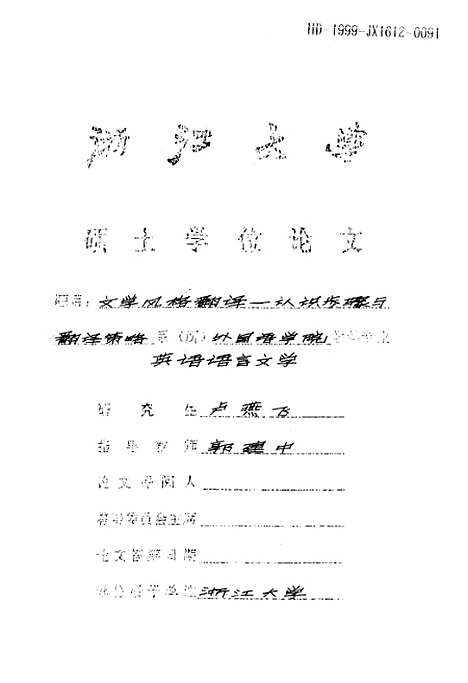 HD-1999-JX1612-0091
浙江大学
硕士学位论文
题目：文学风格翻译—认识步骤与
翻译策略 系(所)外国语学院
英语语言文学
研究生 卢燕飞
指导教师 郭建中
论文评阅人
答辩委员会主席
论文答辩日期
学位授予单位 浙江大学